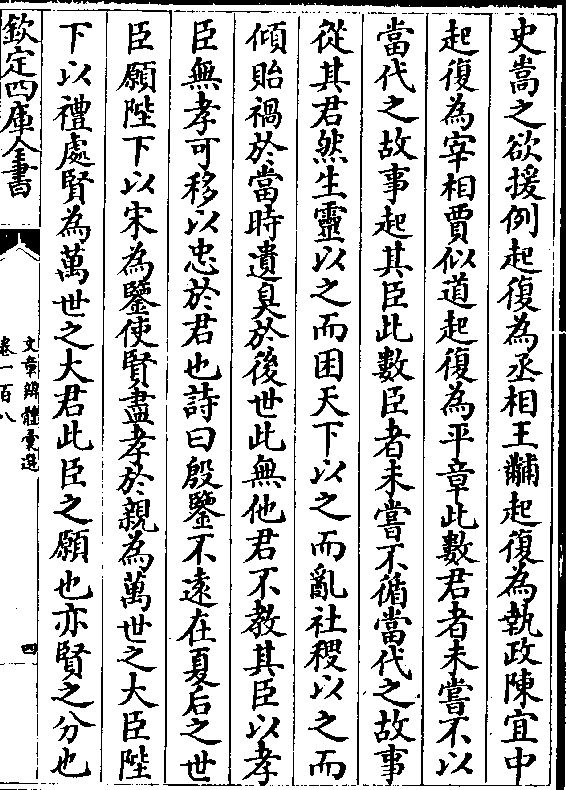 史嵩之欲援例起復為丞相王黼起復為執政陳宜中
起復為宰相賈似道起復為平章此數君者未嘗不以
當代之故事起其臣此數臣者未嘗不循當代之故事
從其君然生靈以之而困天下以之而亂社稷以之而
傾貽禍於當時遺臭於後世此無他君不教其臣以孝
臣無孝可移以忠於君也詩曰殷鑒不遠在夏后之世
臣願陛下以宋為鑒使賢盡孝於親為萬世之大臣陛
下以禮處賢為萬世之大君此臣之願也亦賢之分也
欽定四庫全書
文章辨體彙選
卷一百八
四